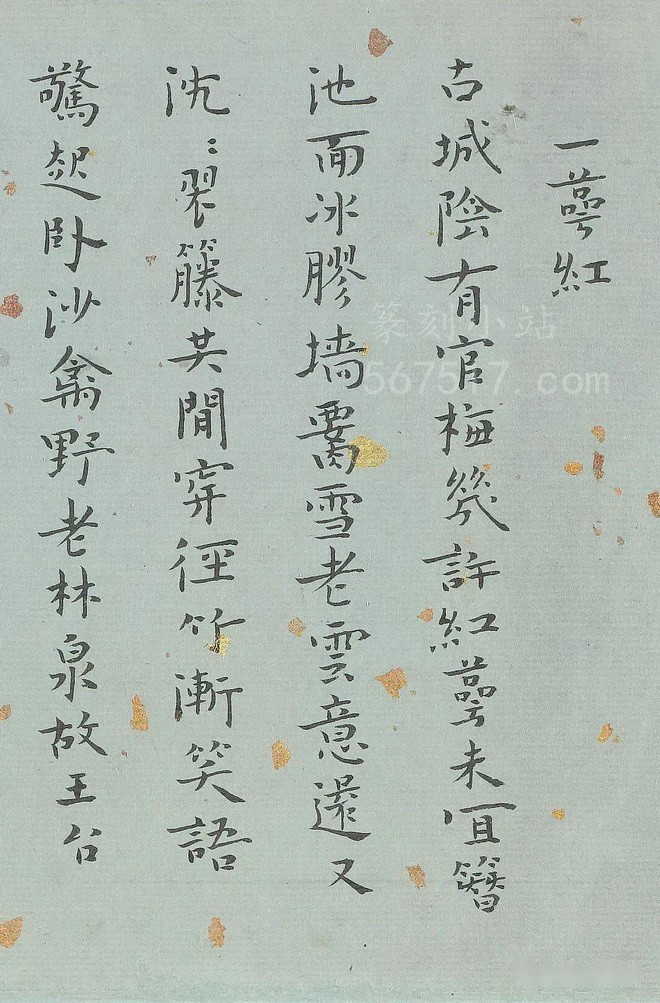 一萼紅
古城陰有官梅幾許紅萼未宜簪
池面冰膠墻腰雪老雲意還又
沈〻翠藤共閒穿徑竹漸笑語
驚起臥沙禽野老林泉故王台
篆刻小站
com